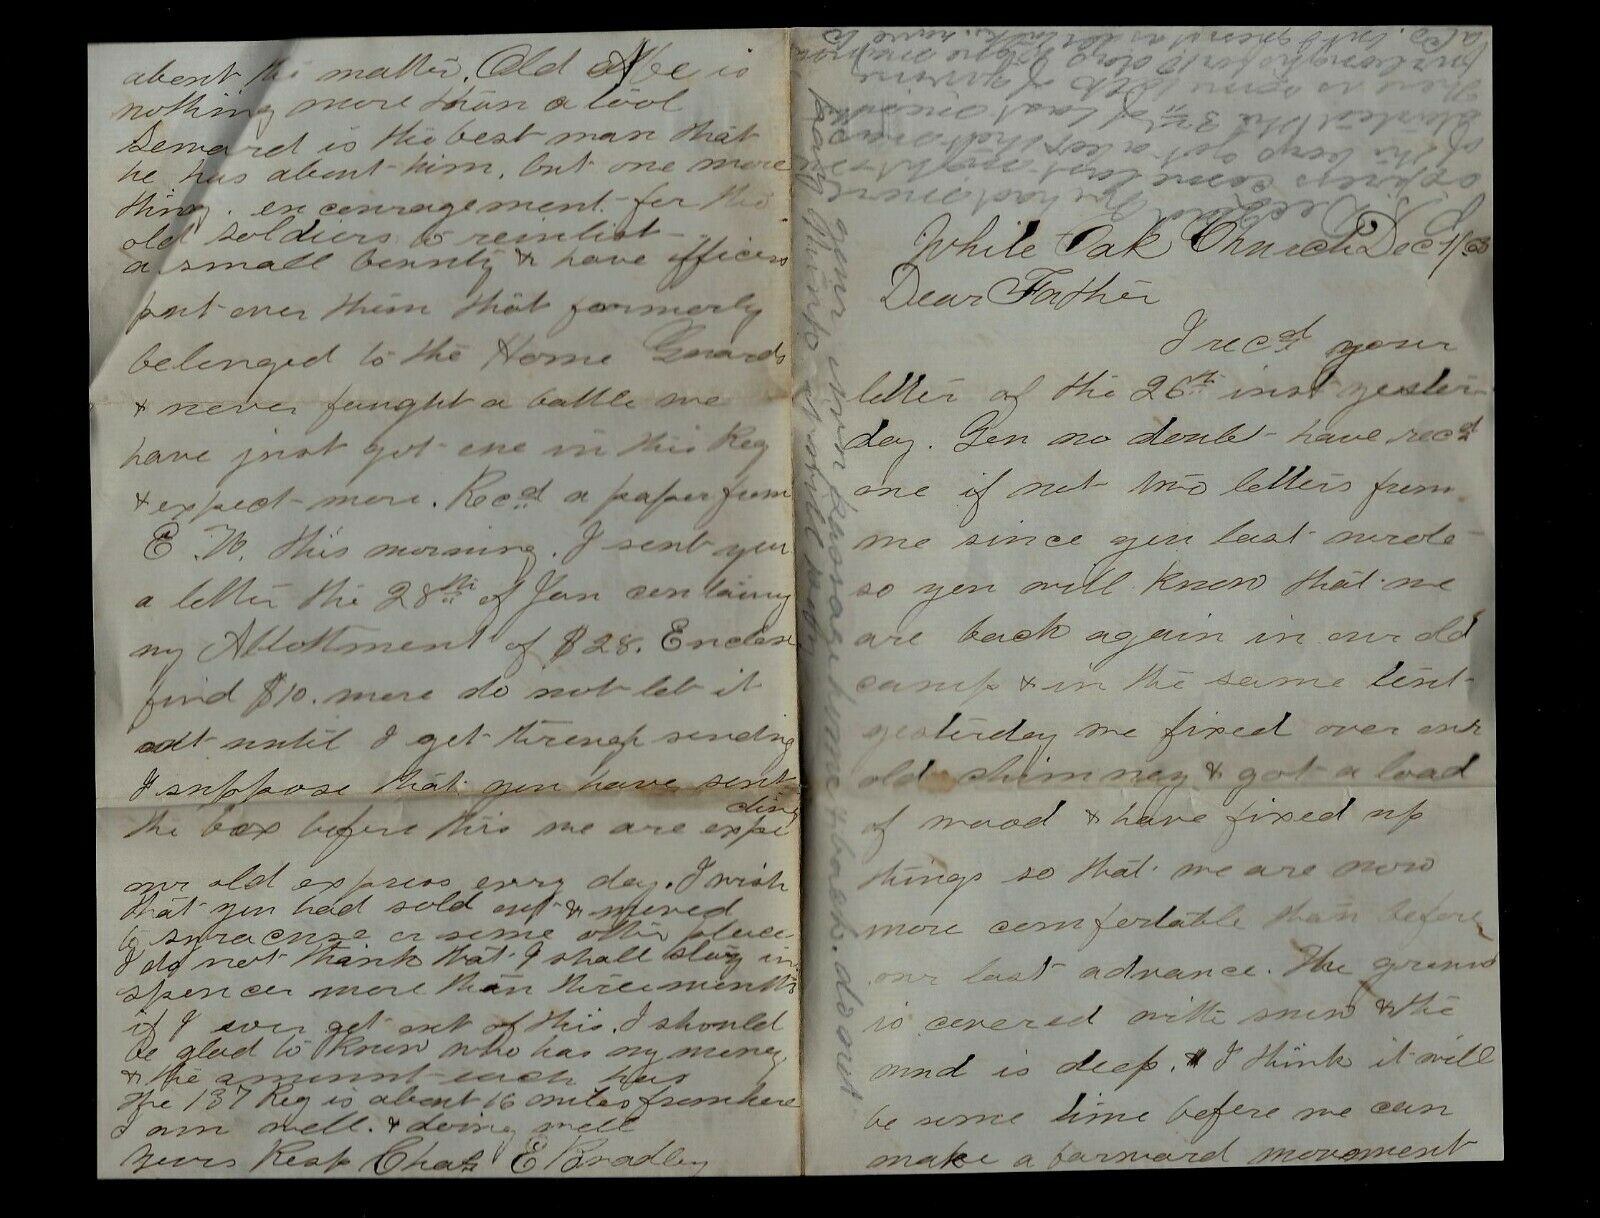 White Oak Church Dec 1/63
Dear Father
I recd your
letter of the 26th inst yester
day. You no doubt have recd
one if not two letters from
me since you last wrote
so you will know that we
are back again in our old
camp & in the same tent
yesterday we fixed over our
old chimney & got a load
of wood & have fixed up
things so that we are now
more comfortable than before
our last advance. The ground
is covered with snow & the
mud is deep. & I think it will
be some time before we can
make a forward movement
about the matter. Old Abe is
nothing more than a tool
Seward is the best man that
he has about him. but one more
thing. encouragement for the
old soldiers to reenlist
a small bounty & have officers
put over them that formerly
belonged to the Home Guards
& never fought a battle we
have just got one in this Reg
& expect more. Recd a paper from
E. W. this morning. I sent you
a letter the 28th of Jan containing
my Allottment of $28. Enclose
find $10. more do not let it
out until I get through sending
I suppose that you have sent
the box before this we are expecting
our old express every day. I wish
that you had sold out & moved
to syracuse or some other place
I do not think that I shall stay in
spencer more than three months
if I ever get out of this. I should
be glad to know who has my money
& the amount each has
the 137 Reg is about 16 miles from here
I am well. & doing well
Yours Resp Chas E Bradley
express come last night
of the boys got a box that was
started the 3rd of last month
there is some talk of giving
furloughs for 10 days
your own passage home & back. do not